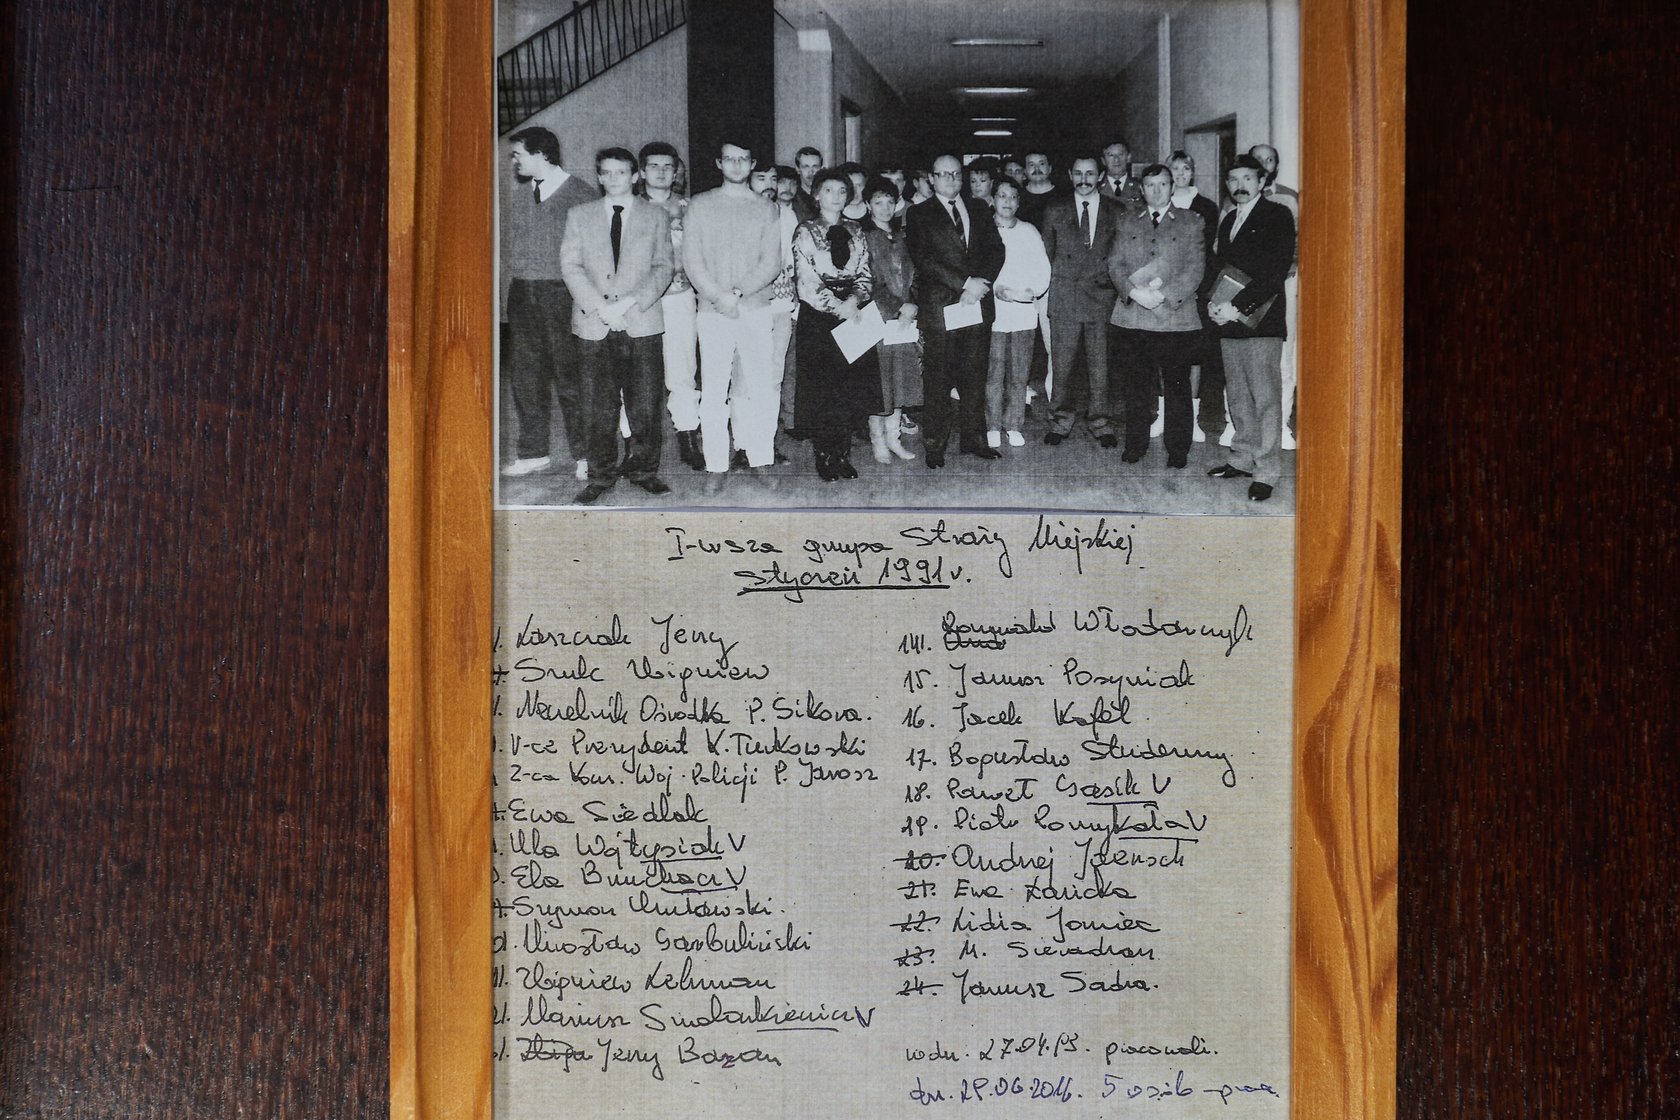 I-wsza grupa Straży Miejskiej
Styczeń 1991 r.
Kaszczak Jerzy
Szulc Zbigniew
Naczelnik Ośrodka P. Sikora.
V-ce Prezydent K. Turkowski
Z-ca Kom. Woj. Policji P. Jarosz
Ewa Siedlak
Ula Wojtysiak V
Ela V
Szymon
Mirosław Garbuliński
11. Zbigniew Lehman
Mariusz V
Jerzy Bazan
14. Romuald Włodarczyk
15. Janusz Pośpniak
16. Jacek Kafel
17. Bogusław Studenny
18. Paweł Gąsik V
19. Piotr Pomykała V
20. Andrzej
21. Ewa
22. Lidia Jamiec
23. M. Sieradzan
24. Janusz Sadra.
w dn. pracowali.
dn. 29.06.2016. 5 osób prac.